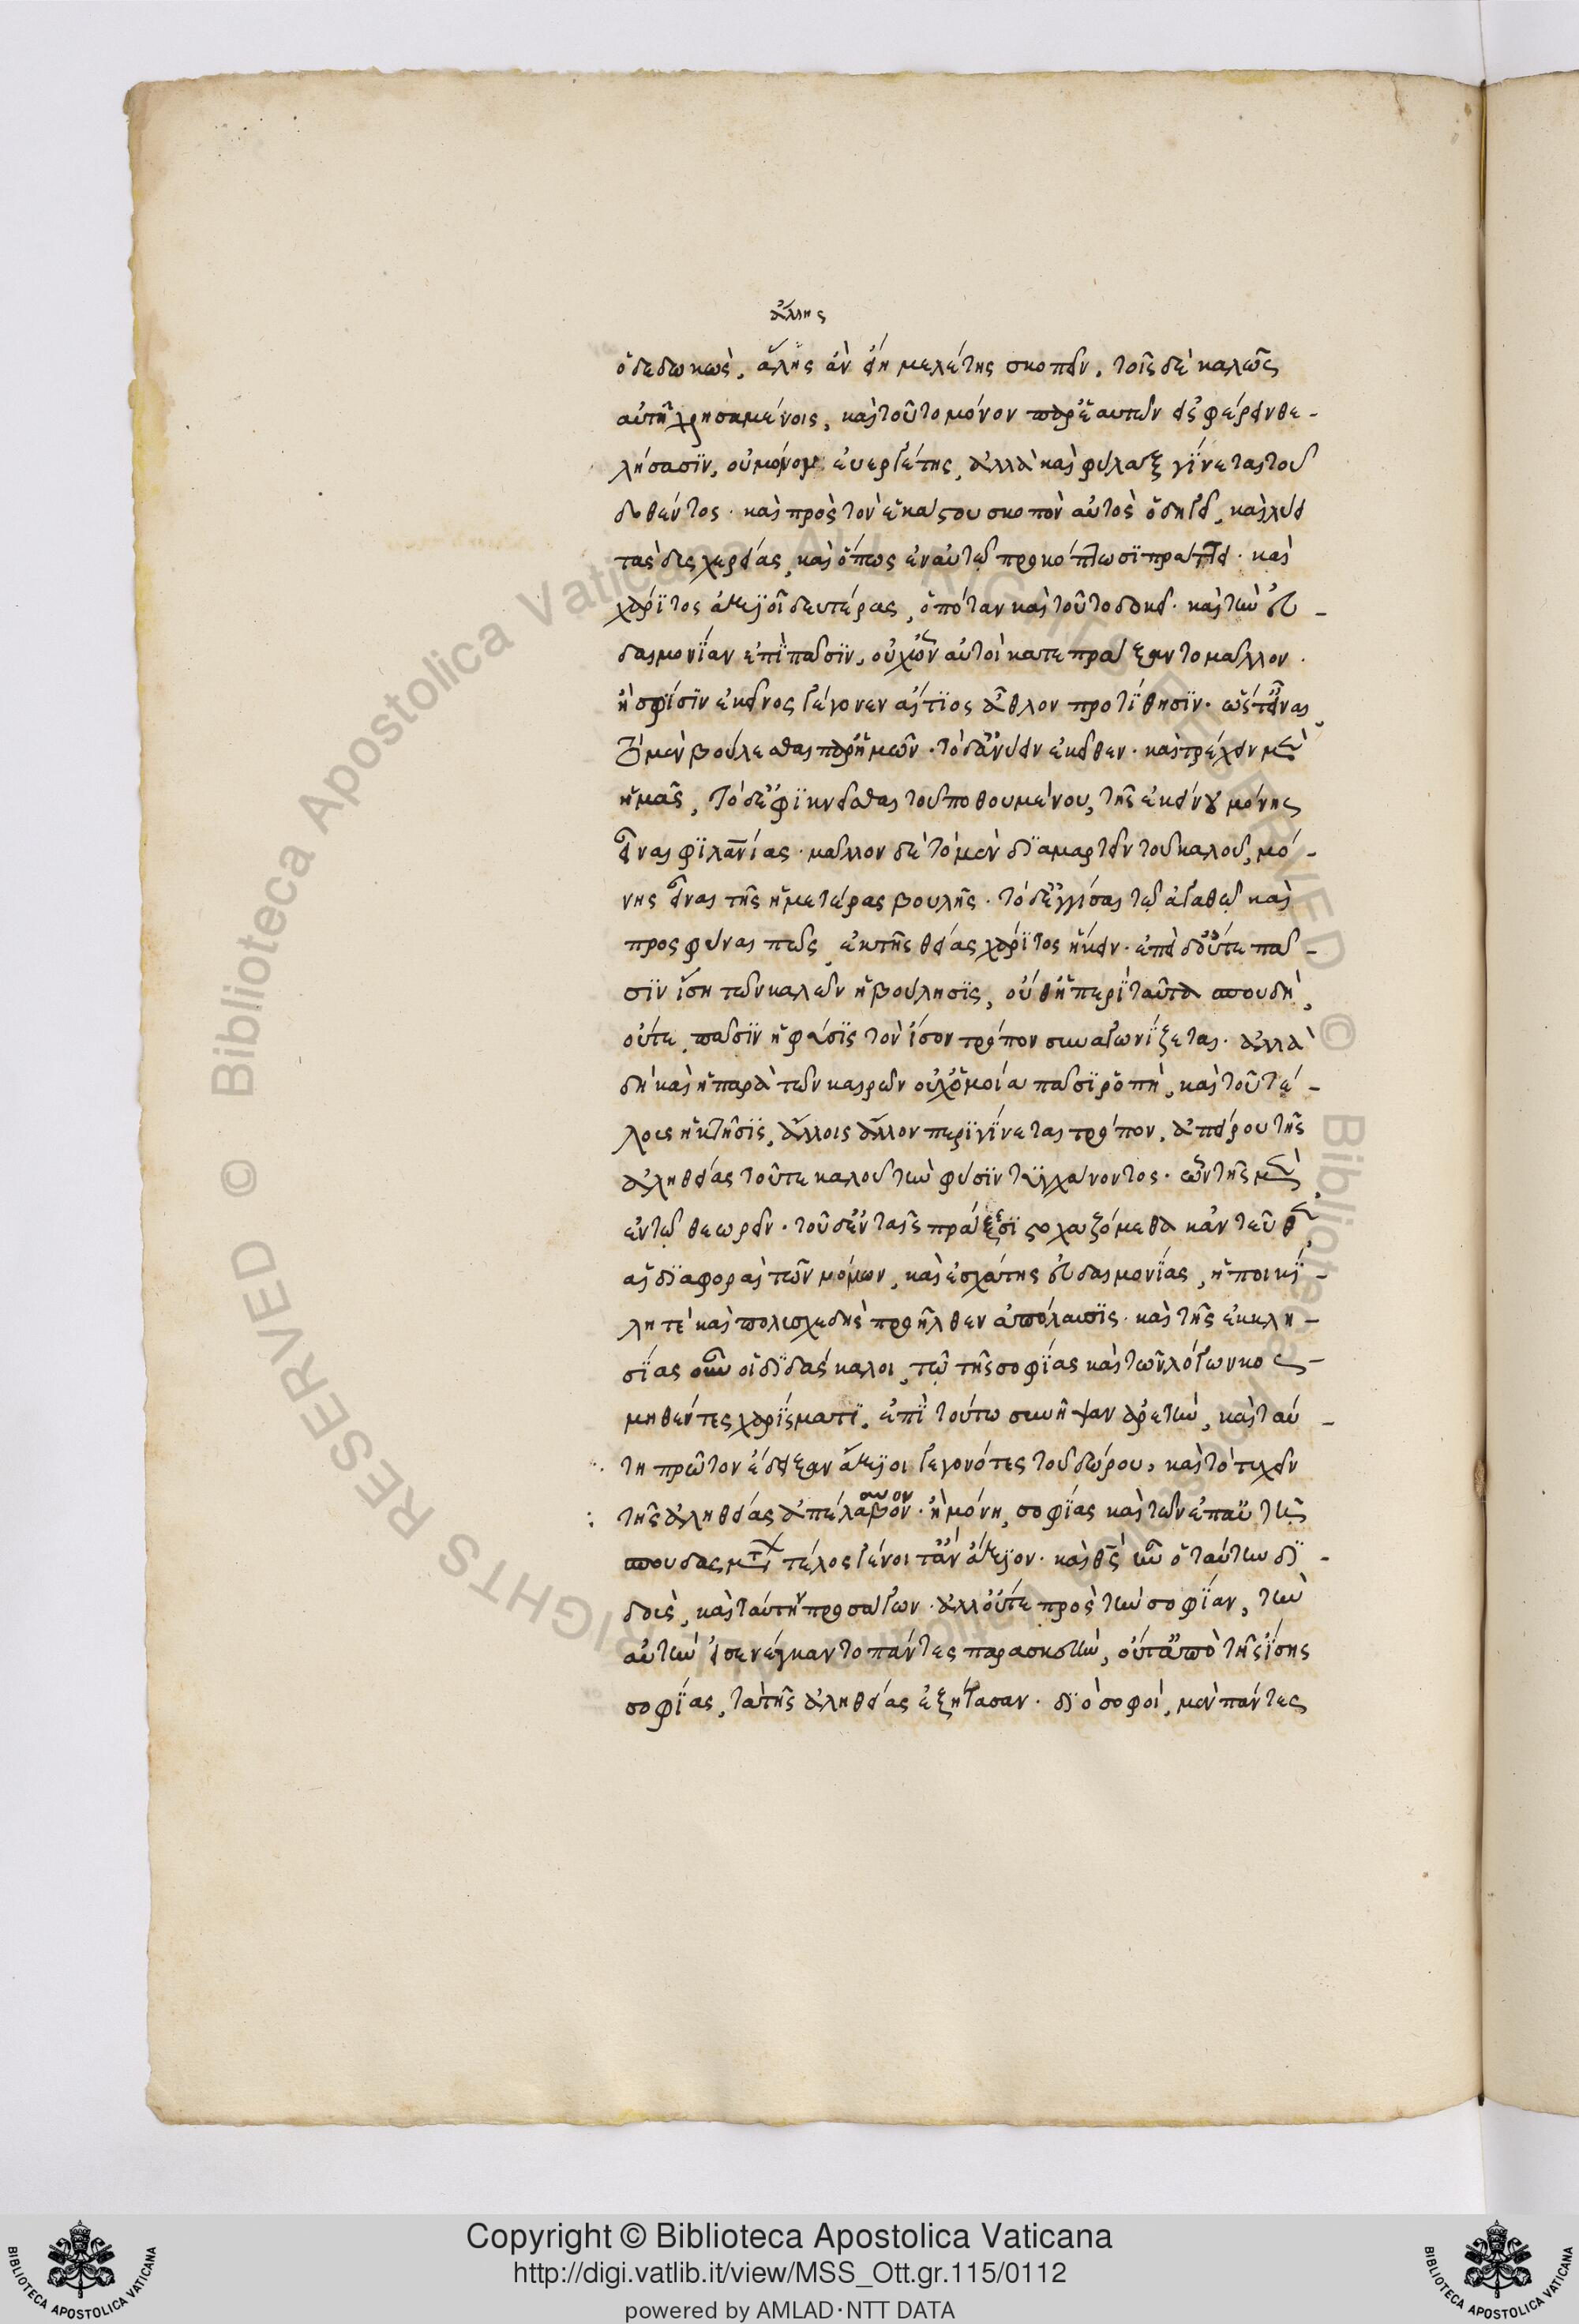 ἄλλης
ὁ δεδωκὼς, ἄλλης ἂν εἴη μελέτης σκοπεῖν. τοῖς δὲ καλῶς
αὐτῇ χρησαμένοις, καὶ τοῦτο μόνον παρ' ἑαυτῶν εἰσφέρειν θε-
λήσασιν, οὐ μόνον εὐεργέτης, ἀλλὰ καὶ φύλαξ γίνεται τοῦ
δοθέντος. καὶ πρὸς τὸν ἑκάστου σκοπὸν αὐτὸς ὁδηγεῖ, καὶ λύει
τὰς δυσχερείας, καὶ ὅπως ἐν αὐτῷ προκόπτωσι πράττει. καὶ
χάριτος ἄξιοι δευτέρας, ὁπόταν καὶ τοῦτο δοκεῖ. καὶ τὴν εὐ-
δαιμονίαν ἐπὶ πᾶσιν, οὐχ ὧν αὐτοὶ κατεπράξαντο μᾶλλον.
ἢ σφίσιν ἐκεῖνος γέγονεν αἴτιος ἆθλον προτίθησιν. ὥστ' εἶναι
τὸ μὲν βούλεσθαι παρ' ἡμῶν. τὸ δ' ἀνύειν ἐκεῖθεν. καὶ τρέχειν μὲν
ἡμᾶς, τὸ δ' ἐφικνεῖσθαι τοῦ ποθουμένου, τῆς ἐκείνου μόνης
εἶναι φιλανίας. μᾶλλον δὲ τὸ μὲν διαμαρτεῖν τοῦ καλοῦ, μό-
νης εἶναι τῆς ἡμετέρας βουλῆς. τὸ δ' ἐγγίσαι τῷ ἀγαθῷ καὶ
προσφῦναι πως, ἐκ τῆς θείας χάριτος ἥκειν. ἐπεὶ δ' οὔτε πᾶ-
σιν ἴση τῶν καλῶν ἡ βούλησις, οὔθ' ἡ περὶ ταῦτα σπουδὴ,
οὔτε πᾶσιν ἡ φύσις τὸν ἴσον τρόπον συναγωνίζεται. ἀλλὰ
δὴ καὶ ἡ παρὰ τῶν καιρῶν οὐχ ὁμοία πᾶσι ῥοπὴ, καὶ τοῦ τέ-
λους ἡ κτῆσις, ἄλλοις ἄλλον περιγίνεται τρόπον, ἀπείρου τῆς
ἀληθείας τοῦ τε καλοῦ τὴν φύσιν τυγχάνοντος. ὧν τῆς μὲν
ἐν τῷ θεωρεῖν. τοῦ δ' ἐν ταῖς πράξεσι στοχαζόμεθα κἀντεῦθεν
αἱ διαφοραὶ τῶν νόμων, καὶ ἐσχάτης εὐδαιμονίας, ἡ ποικί-
λη τὲ καὶ πολυσχεδὴς προῆλθεν ἀπόλαυσις. καὶ τῆς ἐκκλη-
σίας οὖν οἱ διδάσκαλοι, τῷ τῆς σοφίας καὶ τῶν λόγων κοσ-
μηθέντες χαρίσματι. ἐπὶ τούτω συνῆψαν ἀρετὴν, καὶ ταύ-
τη πρῶτον ἔδειξαν ἄξιοι γεγονότες τοῦ δώρου, καὶ τὸ τυχεῖν
τῆς ἀληθείας ἀπέλαβον. ἢ μόνη, σοφίας καὶ τῶν ἐπ' αὐτῆς
σπουδαῖς τέλος γένοιτ' ἂν ἄξιον. καὶ θς ἦν ὁ ταύτην δι-
δοὺς, καὶ ταύτην προσάγων. ἀλλ' οὔτε πρὸς τὴν σοφίαν, τὴν
αὐτὴν εἰσενέγκαντο πάντες παρασκευὴν, οὔτ' ἀπὸ τῆς ἴσης
σοφίας, τὰ τῆς ἀληθείας ἐξήτασαν. διὸ σοφοὶ, μὲν πάντες
Copyright © Biblioteca Apostolica Vaticana
http://digi.vatlib.it/view/MSS_Ott.gr.115/0112
powered by AMLAD·NTT DATA